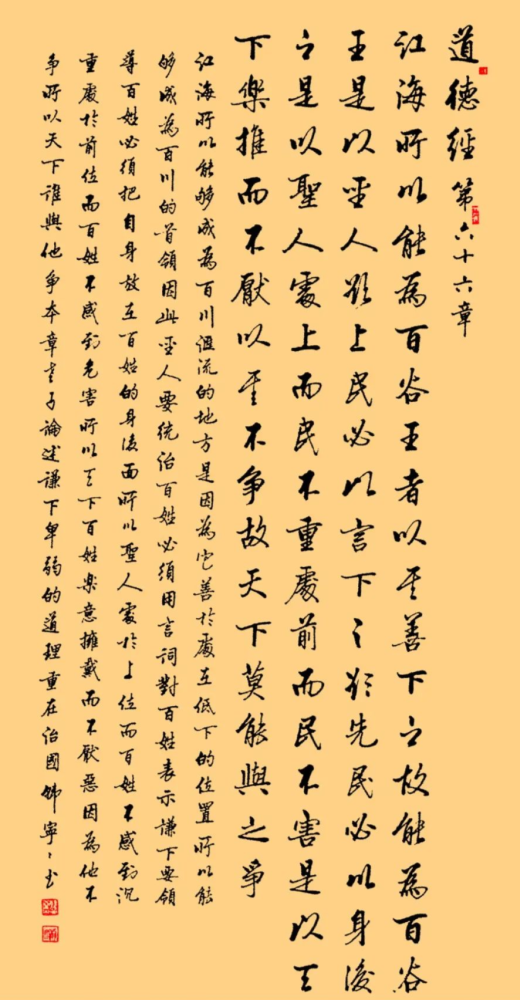 道德經第六十六章
江海所以能為百谷王者以其善下之故能為百谷
王是以聖人欲上民必以言下之欲先民必以身後
之是以聖人處上而民不重處前而民不害是以天
下樂推而不厭以其不爭故天下莫能與之爭
江海所以能够成為百川匯流的地方是因為它善於處在低下的位置所以能
够成為百川的首領因此聖人要統治百姓必須用言詞對百姓表示謙下要領
導百姓必須把自身放在百姓的身後面所以聖人處於上位而百姓不感到沉
重處於前位而百姓不感到危害所以天下百姓樂意擁戴而不厭惡因為他不
爭所以天下誰與他爭本章老子論述謙下卑弱的道理重在治國 寧寧书